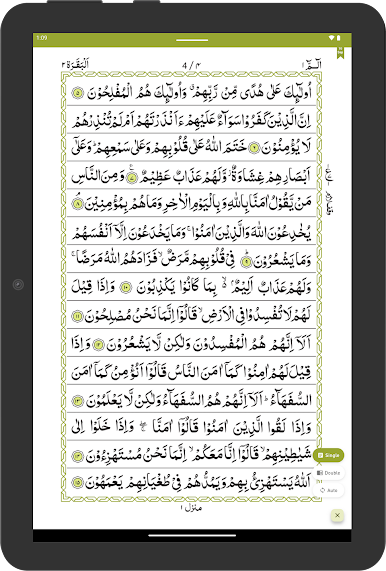 1:09
الٓمّٓ ١
4 / ۴
اَلْبَقَرَة ٢
اُولٰٓئِكَ عَلٰى هُدًى مِّنْ رَّبِّهِمْ ۙ وَاُولٰٓئِكَ هُمُ الْمُفْلِحُوْنَ ۝۵
اِنَّ الَّذِيْنَ كَفَرُوْا سَوَآءٌ عَلَيْهِمْ ءَاَنْذَرْتَهُمْ اَمْ لَمْ تُنْذِرْهُمْ
لَا يُؤْمِنُوْنَ ۝۶ خَتَمَ اللّٰهُ عَلٰى قُلُوْبِهِمْ وَعَلٰى سَمْعِهِمْ ؕ وَعَلٰٓى
اَبْصَارِهِمْ غِشَاوَةٌ ؗ وَّلَهُمْ عَذَابٌ عَظِيْمٌ ۝۷ وَمِنَ النَّاسِ
مَنْ يَّقُوْلُ اٰمَنَّا بِاللّٰهِ وَبِالْيَوْمِ الْاٰخِرِ وَمَا هُمْ بِمُؤْمِنِيْنَ ۝۸
يُخٰدِعُوْنَ اللّٰهَ وَالَّذِيْنَ اٰمَنُوْا ۚ وَمَا يَخْدَعُوْنَ اِلَّآ اَنْفُسَهُمْ
وَمَا يَشْعُرُوْنَ ۝۹ فِيْ قُلُوْبِهِمْ مَّرَضٌ ۙ فَزَادَهُمُ اللّٰهُ مَرَضًا ۚ
وَلَهُمْ عَذَابٌ اَلِيْمٌۢ ۙ بِمَا كَانُوْا يَكْذِبُوْنَ ۝۱۰ وَاِذَا قِيْلَ
لَهُمْ لَا تُفْسِدُوْا فِي الْاَرْضِ ۙ قَالُوْٓا اِنَّمَا نَحْنُ مُصْلِحُوْنَ ۝۱۱
اَلَآ اِنَّهُمْ هُمُ الْمُفْسِدُوْنَ وَلٰكِنْ لَّا يَشْعُرُوْنَ ۝۱۲ وَاِذَا
قِيْلَ لَهُمْ اٰمِنُوْا كَمَآ اٰمَنَ النَّاسُ قَالُوْٓا اَنُؤْمِنُ كَمَآ اٰمَنَ
السُّفَهَآءُ ؕ اَلَآ اِنَّهُمْ هُمُ السُّفَهَآءُ وَلٰكِنْ لَّا يَعْلَمُوْنَ ۝۱۳
وَاِذَا لَقُوا الَّذِيْنَ اٰمَنُوْا قَالُوْٓا اٰمَنَّا ۖۚ وَاِذَا خَلَوْا اِلٰى
شَيٰطِيْنِهِمْ ۙ قَالُوْٓا اِنَّا مَعَكُمْ ۙ اِنَّمَا نَحْنُ مُسْتَهْزِءُوْنَ ۝۱۴
اَللّٰهُ يَسْتَهْزِئُ بِهِمْ وَيَمُدُّهُمْ فِيْ طُغْيَانِهِمْ يَعْمَهُوْنَ ۝۱۵
منزل ١
Single
Double
Auto